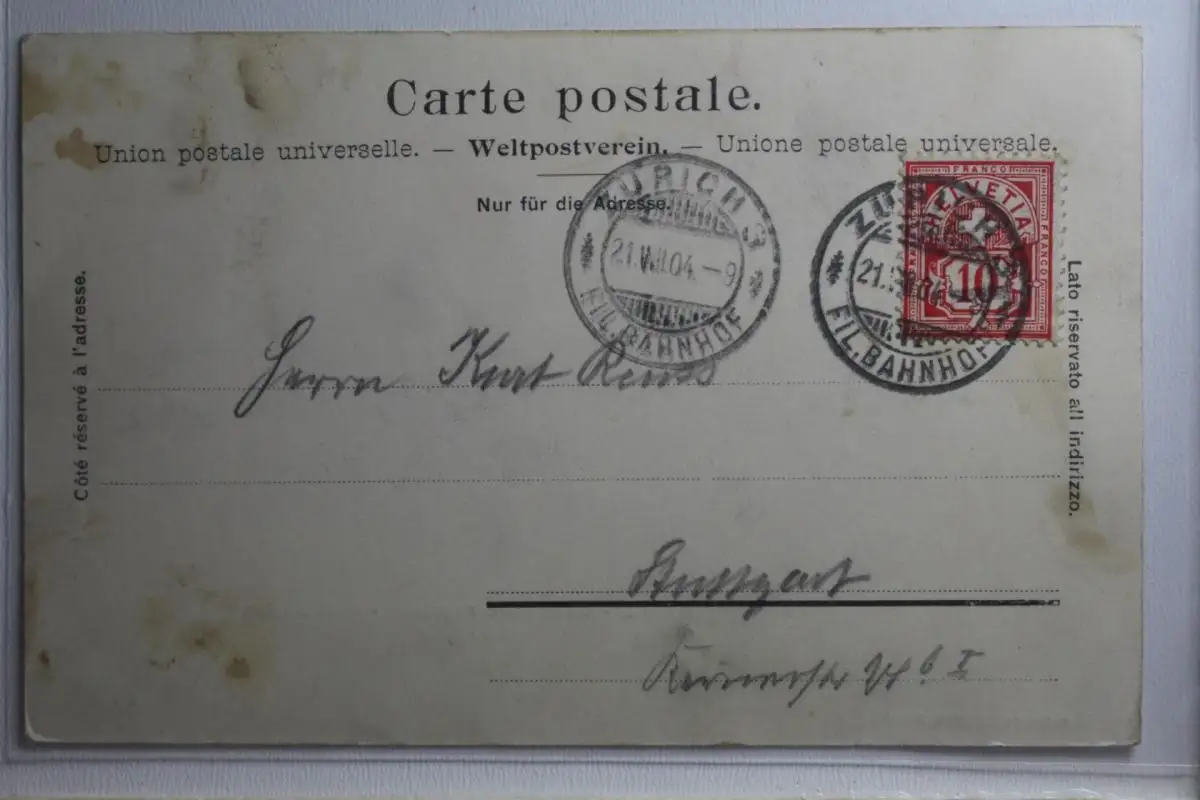 Carte postale.
Union postale universelle. — Weltpostverein. — Unione postale universale.
Nur für die Adresse.
FRANCO
HELVETIA
FRANCO
FRANCO
10
ZÜRICH 3
21.VII.04.–9
FIL. BAHNHOF
ZÜRICH 3
21.VII.04.–9
FIL. BAHNHOF
Côté réservé à l'adresse.
Lato riservato all indirizzo.
Herrn Kurt
Stuttgart